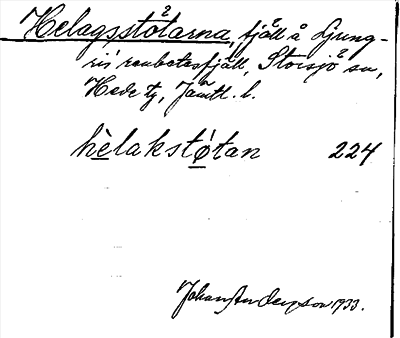 Helagsstötarna, fjäll å Ljung-
ris' renbetesfjäll, Storsjö sn,
Hede tg, Jämtl. l.
hèlakstǿtan 224
Johan Anderson 1933.